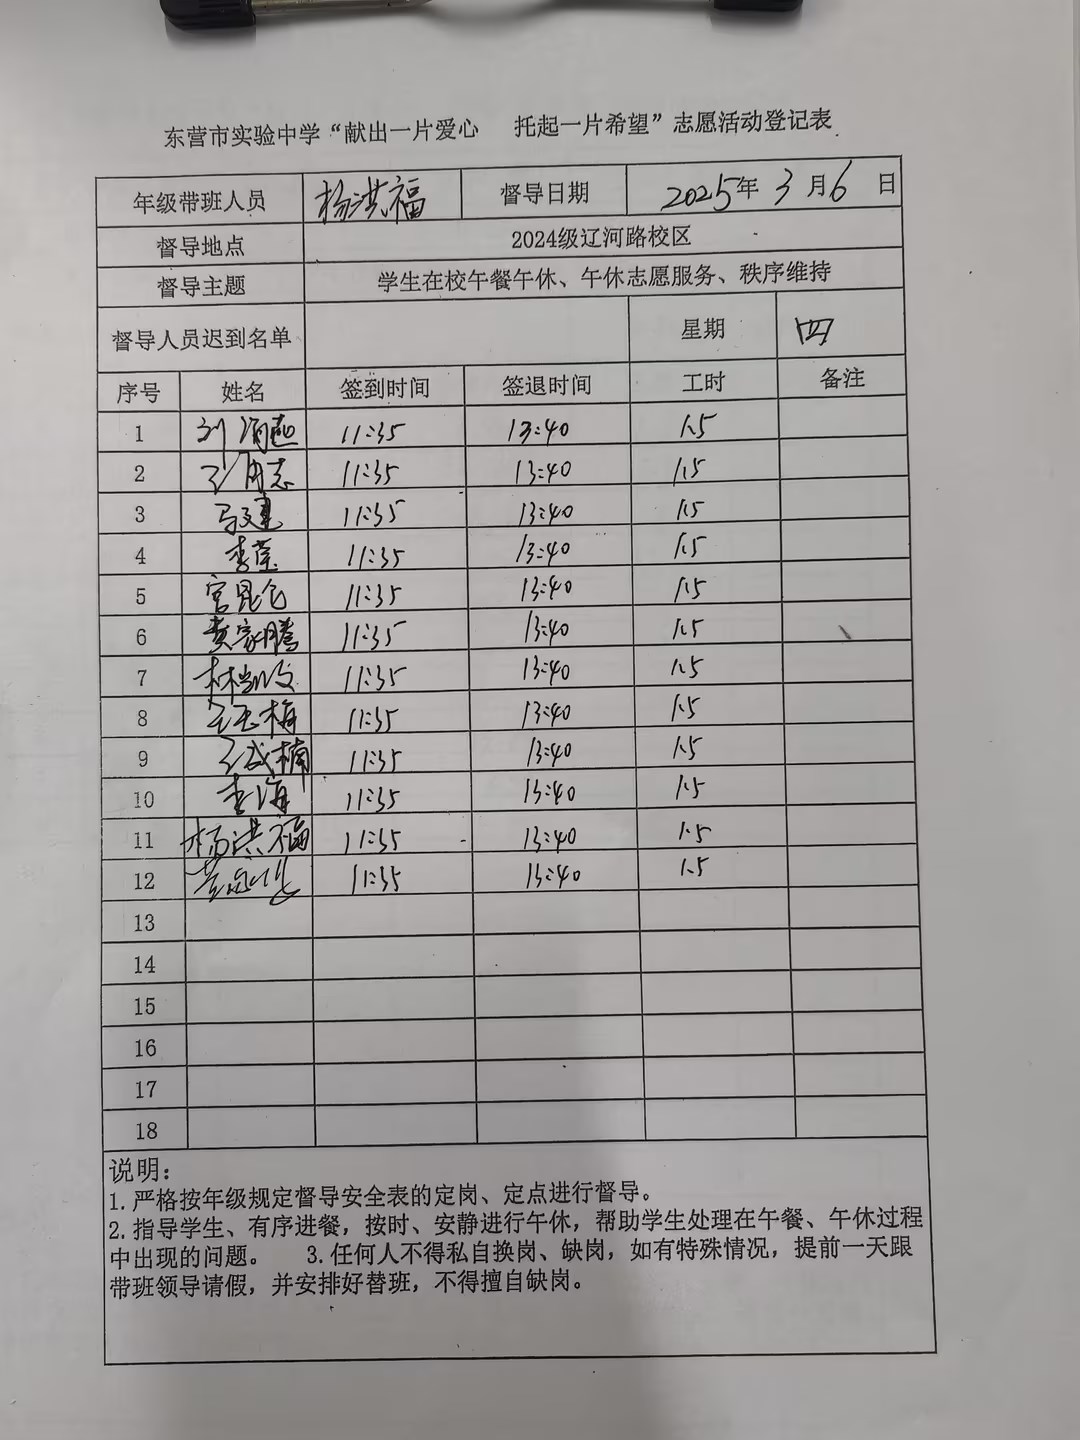 东营市实验中学“献出一片爱心 托起一片希望”志愿活动登记表
年级带班人员 杨洪福 督导日期 2025年 3 月 6 日
督导地点 2024级辽河路校区
督导主题 学生在校午餐午休、午休志愿服务、秩序维持
督导人员迟到名单 星期 四
序号 姓名 签到时间 签退时间 工时 备注
1 11:35 13:40 1.5
2 11:35 13:40 1.5
3 马建 11:35 13:40 1.5
4 李莹 11:35 13:40 1.5
5 宫昆仑 11:35 13:40 1.5
6 黄家腾 11:35 13:40 1.5
7 林凯文 11:35 13:40 1.5
8 王玉梅 11:35 13:40 1.5
9 王成楠 11:35 13:40 1.5
10 李海 11:35 13:40 1.5
11 杨洪福 11:35 13:40 1.5
12 11:35 13:40 1.5
13
14
15
16
17
18
说明：
1.严格按年级规定督导安全表的定岗、定点进行督导。
2.指导学生、有序进餐，按时、安静进行午休，帮助学生处理在午餐、午休过程
中出现的问题。 3.任何人不得私自换岗、缺岗，如有特殊情况，提前一天跟
带班领导请假，并安排好替班，不得擅自缺岗。